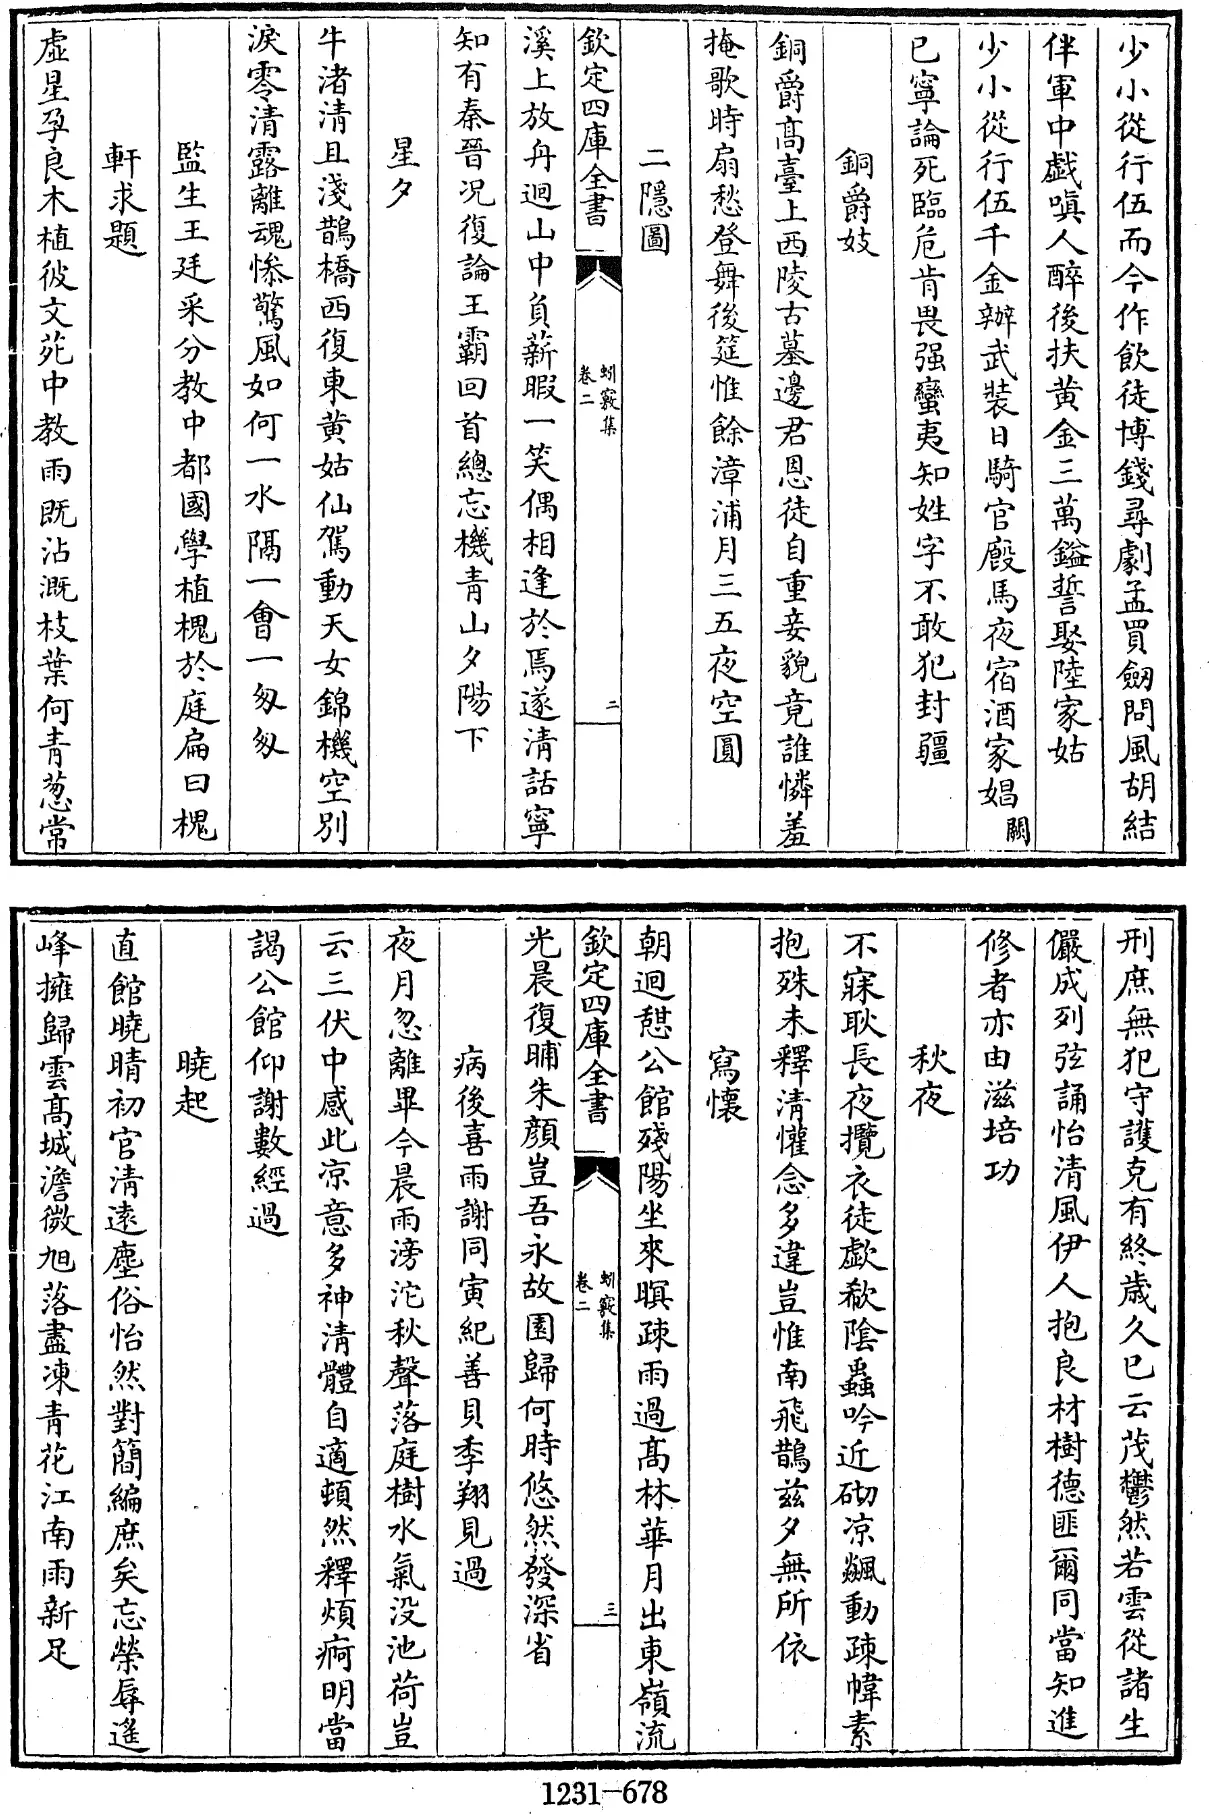 少小從行伍而今作飲徒博錢尋劇孟買劔問風胡結
伴軍中戯嗔人醉後扶黄金三萬鎰誓娶陸家姑
少小從行伍千金辦武裝日騎官廐馬夜宿酒家娼闕
已寧論死臨危肯畏强蠻夷知姓字不敢犯封疆
銅爵妓
銅爵髙臺上西陵古墓邊君恩徒自重妾貌竟誰憐羞
掩歌時扇愁登舞後筵惟餘漳浦月三五夜空圓
二隱圖
欽定四庫全書
蚓竅集
卷二
二
溪上放舟迴山中負薪暇一笑偶相逢於焉遂清話寧
知有秦晉况復論王霸回首總忘機青山夕陽下
星夕
牛渚清且淺鵲橋西復東黄姑仙駕動天女錦機空别
淚零清露離魂慘驚風如何一水隔一會一匆匆
監生王廷采分教中都國學植槐於庭扁曰槐
軒求題
虛星孕良木植彼文苑中教雨既沾溉枝葉何青葱常
刑庶無犯守護克有終歲久已云茂鬱然若雲從諸生
儼成列弦誦怡清風伊人抱良材樹德匪爾同當知進
修者亦由滋培功
秋夜
不寐耿長夜攬衣徒歔欷陰蟲吟近砌凉飈動疎幃素
抱殊未釋清懽念多違豈惟南飛鵲兹夕無所依
寫懷
朝迴憇公館殘陽坐來暝疎雨過髙林華月出東嶺流
欽定四庫全書
蚓竅集
卷二
三
光晨復晡朱顔豈吾永故園歸何時悠然發深省
病後喜雨謝同寅紀善貝季翔見過
夜月忽離畢今晨雨滂沱秋聲落庭樹水氣没池荷豈
云三伏中感此凉意多神清體自適頓然釋煩痾明當
謁公館仰謝數經過
曉起
直館曉晴初官清遠塵俗怡然對簡編庶矣忘榮辱遙
峰擁歸雲髙城澹微旭落盡凍青花江南雨新足
1231-678